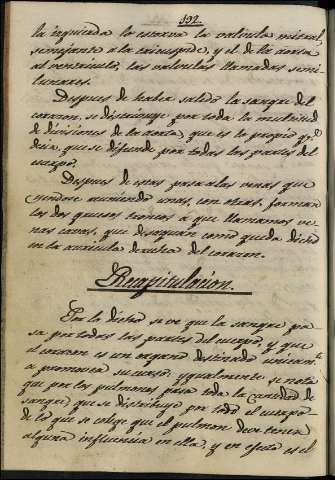 192.
la izquierda lo estorva la valvula mitral,
semejante a la tricuspide, y el de la aorta
al ventriculo, las valvulas llamadas semi
lunares.
Despues de haber salido la sangre del
corazon, se distribuye por toda la multitud
de divisiones de la aorta, que es lo propio q.e
decir, que se difunde por todas las partes del
cuerpo.
Despues de estas pasa a las venas que
yendose auniendo unas, con otras, forman
los dos gruesos troncos a que llamamos ve
nas cavas, que desaguan como queda dicho
en la auricula derecha del corazon.
Recapitulacion.
Por lo dicho se ve que la sangre pa
sa por todas las partes del cuerpo, y que
el corazon es un organo destinado unicam.te
a promover su curso ygualmente se nota
que por los pulmones pasa toda la cantidad de
sangre que se distribuye por todo el cuerpo
de lo que se colige que el pulmon deve tener
alguna influencia en ella, y en efecto es el